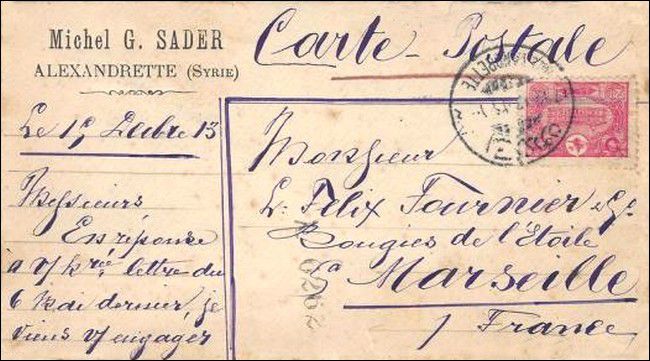 Michel G. SADER
ALEXANDRETTE (SYRIE)
Carte-Postale
Le 19 13
Messieurs
En réponse
à lettre du
6 dernier, je
viens engager
Monsieur
Felix Fournier & Cie
Bougies de l'Etoile
Marseille
France
6262